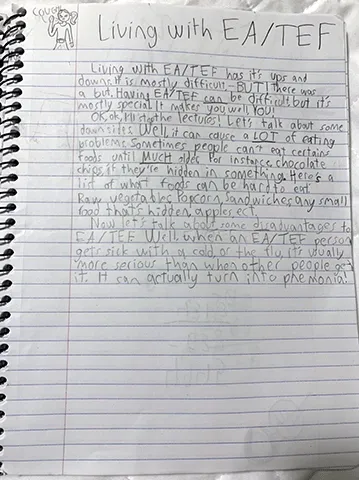 COUGH
Living with EA/TEF
Living with EA/TEF has it's ups and
downs. It is mostly difficult,-BUT! there was
a but. Having EA/TEF can be difficult but it's
mostly special. It makes you well, YOU!
Ok, ok, I'll stop the lectures! Let's talk about some
down sides. Well, it can cause a LOT of eating
problems. Sometimes people can't eat certain
foods until MUCH older. For instance, chocolate
chips if they're hidden in something. Here's a
list of what foods can be hard to eat
Raw vegetables, Popcorn, Sandwiches, any small
food that's hidden, apples, ect.
Now let's talk about some disadvantages to
EA/TEF. Well, when an EA/TEF person
gets sick with a cold or the flu, it's usually
more serious than when other people get
it. It can actually turn into pnemonia!